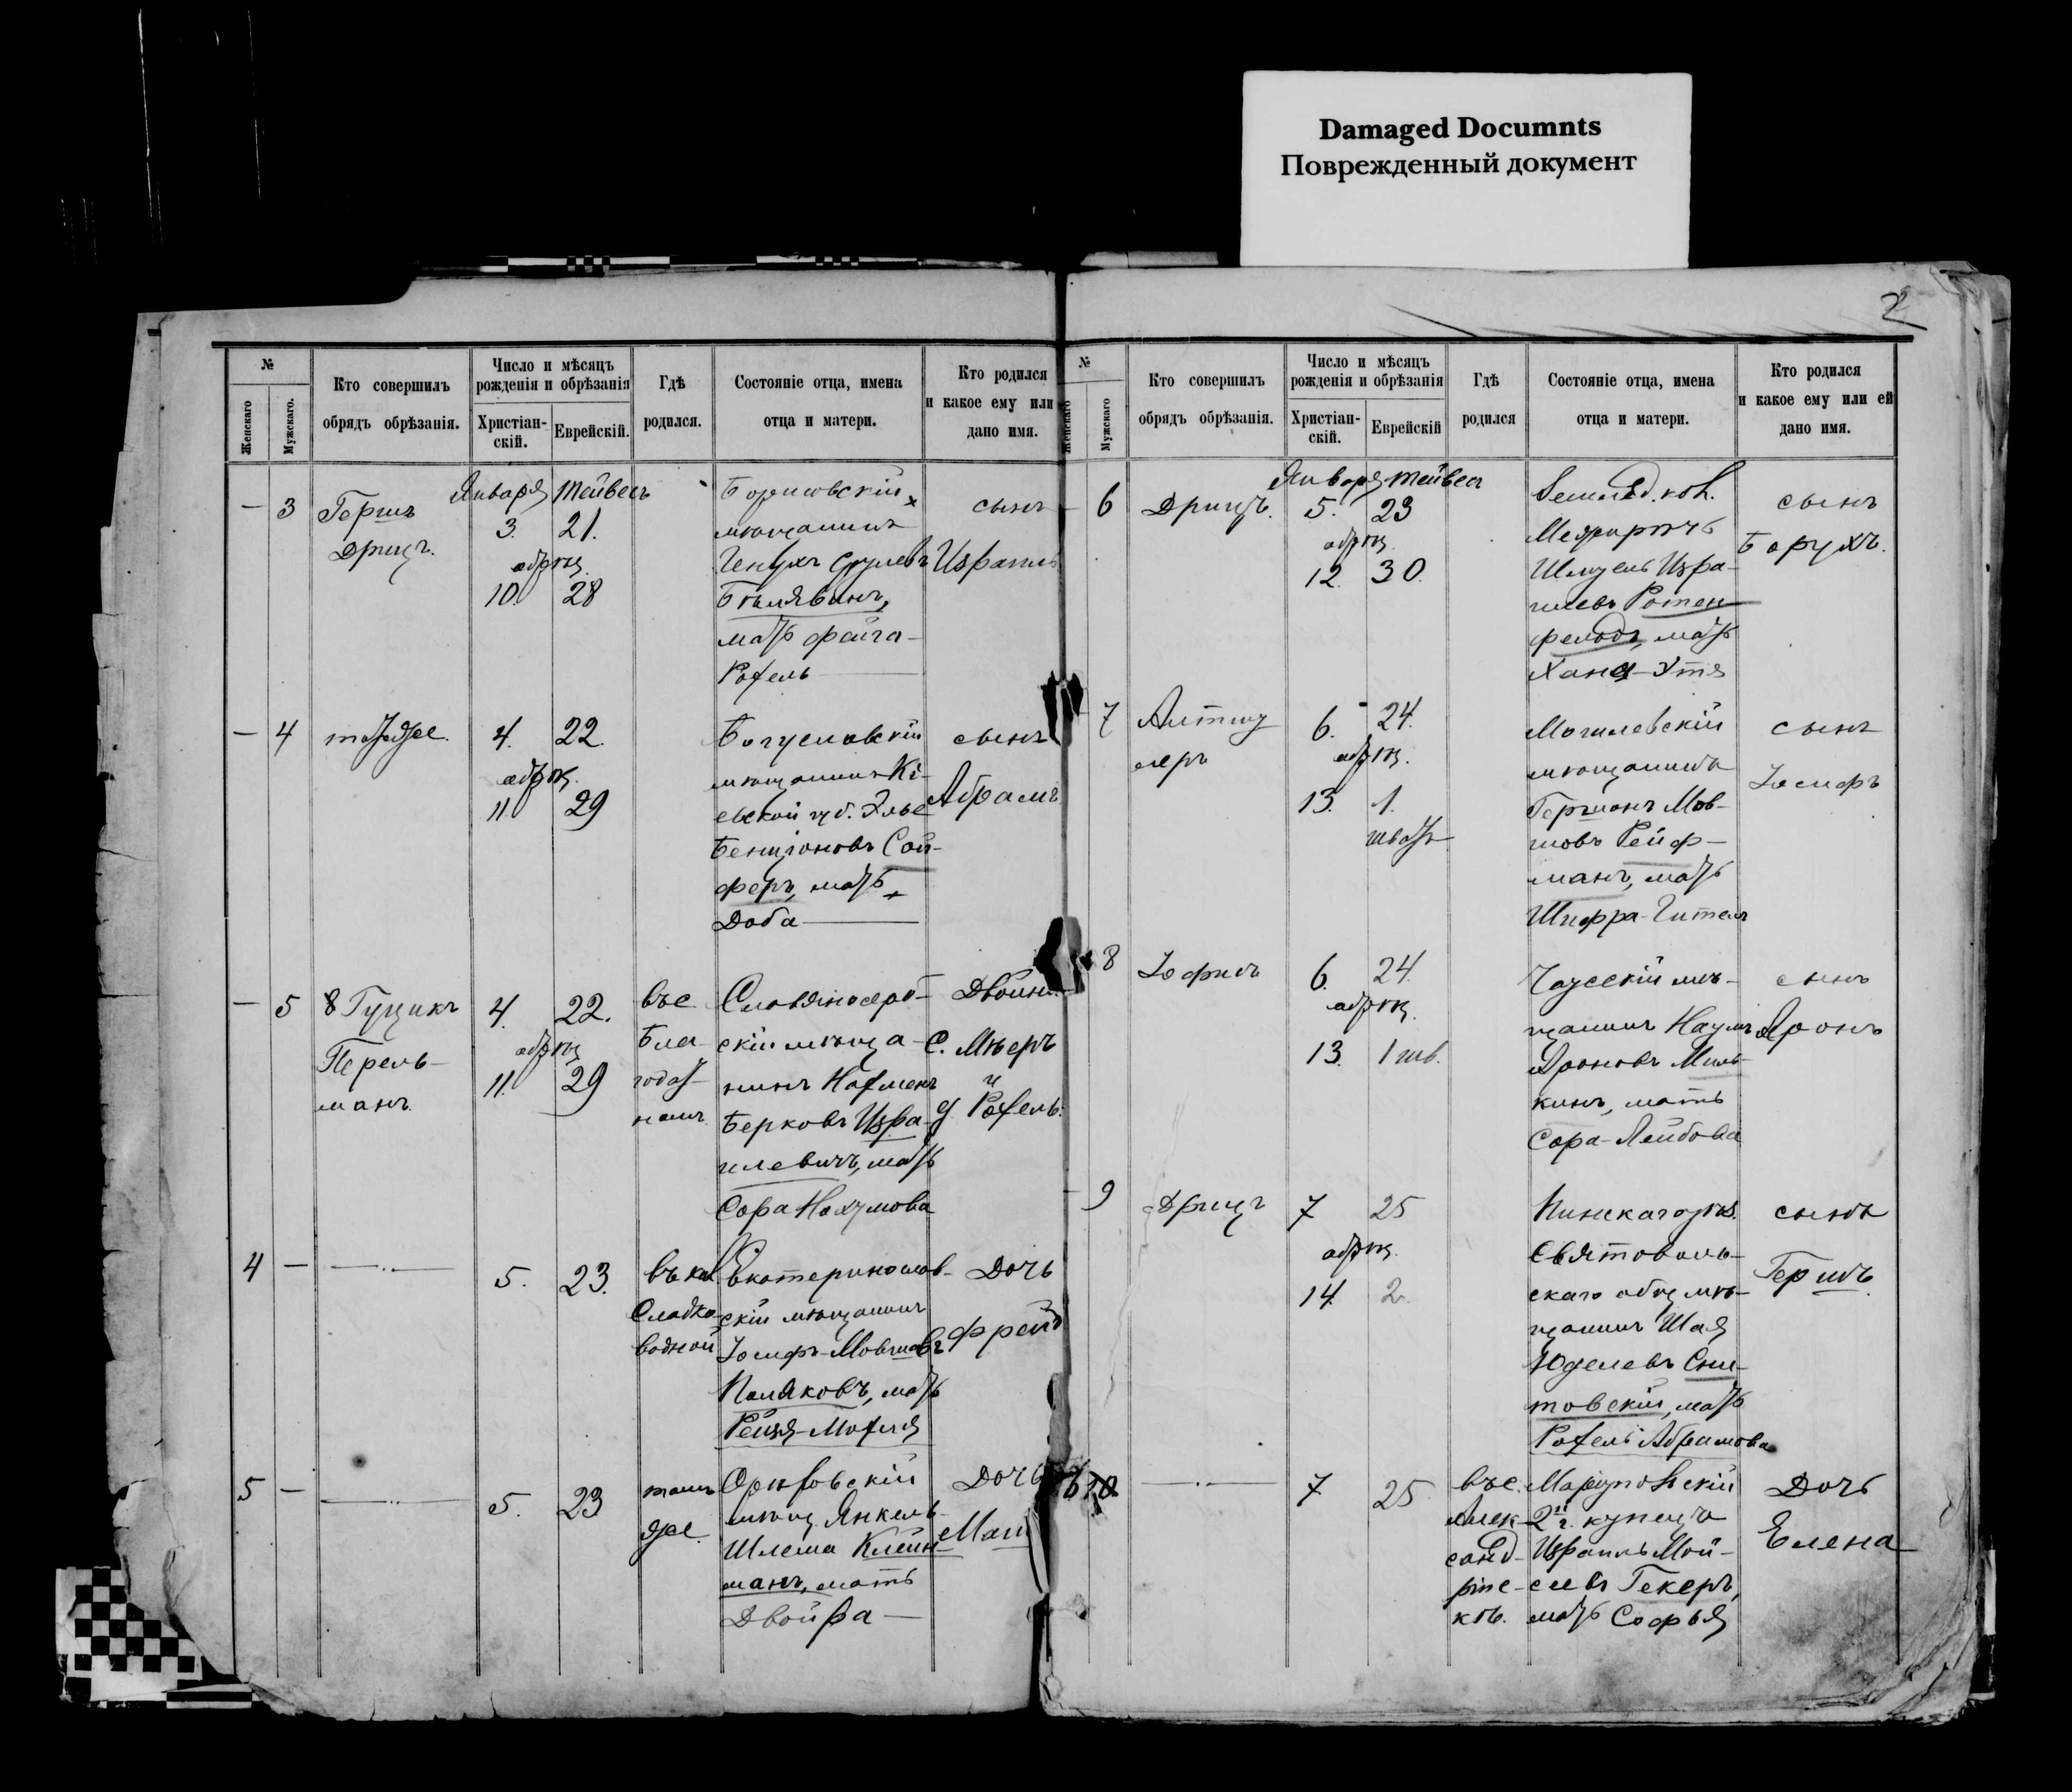 Damaged Documnts
Поврежденный документ
2
№
Женскаго
Мужскаго.
Кто совершилъ
обрядъ обрѣзанія.
Число и мѣсяцъ
рожденія и обрѣзанія
Христіан-
скій.
Еврейскій.
Гдѣ
родился.
Состояніе отца, имена
отца и матери.
Кто родился
и какое ему или
дано имя.
— 3
Гершъ
Дрицъ.
Января Тейвесъ
3. 21.
обрѣз.
10. 28
Борисовскій
мѣщанинъ
Генухъ Срулевъ
Бѣлявинъ,
мать Файга-
Рохель
сынъ
Израиль
— 4
тотъ же.
4. 22.
обрѣз.
11. 29
Богуславскій
мѣщанинъ Кі-
евской губ. Элье
Бенціоновъ Сой-
феръ, мать
Доба
сынъ
Абрамъ
— 5
Гуцикъ
Перель-
манъ.
4. 22.
обрѣз
11. 29
въ с
Бла-
годат-
номъ
Славяносерб-
скій мѣща-
нинъ Нахменъ
Берковъ Изра-
илевичъ, мать
Сора Нахумова
Двойн.
С. Мѣеръ
и
д Рохель.
4 —
5. 23.
въ кол.
Сладко-
водной
Екатеринослав-
скій мѣщанинъ
Іосифъ-Мовшовъ
Поляковъ, мать
Рейзя-Мохля
Дочь
Фрейд
5 —
5. 23
тамъ
же.
Орѣховскій
мѣщ. Янкель-
Шлема Клейн-
манъ, мать
Двойра —
Дочь
Маш
№
Женскаго
Мужскаго
Кто совершилъ
обрядъ обрѣзанія.
Число и мѣсяцъ
рожденія и обрѣзанія
Христіан-
скій.
Еврейскій
Гдѣ
родился
Состояніе отца, имена
отца и матери.
Кто родился
и какое ему или ей
дано имя.
6
Дрицъ.
Января Тейвес
5. 23
обрѣз.
12. 30.
Земляд. кол.
Межиричъ
Шмуель Изра-
илевъ Ротен-
фельдъ, мать
Хана-Этя
сынъ
Борухъ.
7
Алтшу
леръ
6. 24.
обрѣз.
13. 1.
шватъ
Могилевскій
мѣщанинъ
Гершонъ Мов-
шовъ Рейф-
манъ, мать
Шифра-Гитель
сынъ
Іосифъ
8
Іофисъ
6. 24.
обрѣз.
13. 1 шв.
Чаусскій мѣ-
щанинъ Наумъ
Ароновъ Миль-
кинъ, мать
Сора-Лейбова
сынъ
Аронъ
9
Дрицъ
7 25
обрѣз.
14. 2.
Пинскаго уѣз.
Святоволь-
скаго общ мѣ-
щанинъ Шая
Юделевъ Сни-
товскій, мать
Рохель Абрамова
сынъ
Гершъ.
7 25
въ с.
Алек-
санд-
рине-
кѣ.
Маріупольскій
2й г. купецъ
Израиль Мой-
сеевъ Гекеръ,
мать Софья
Дочь
Елена